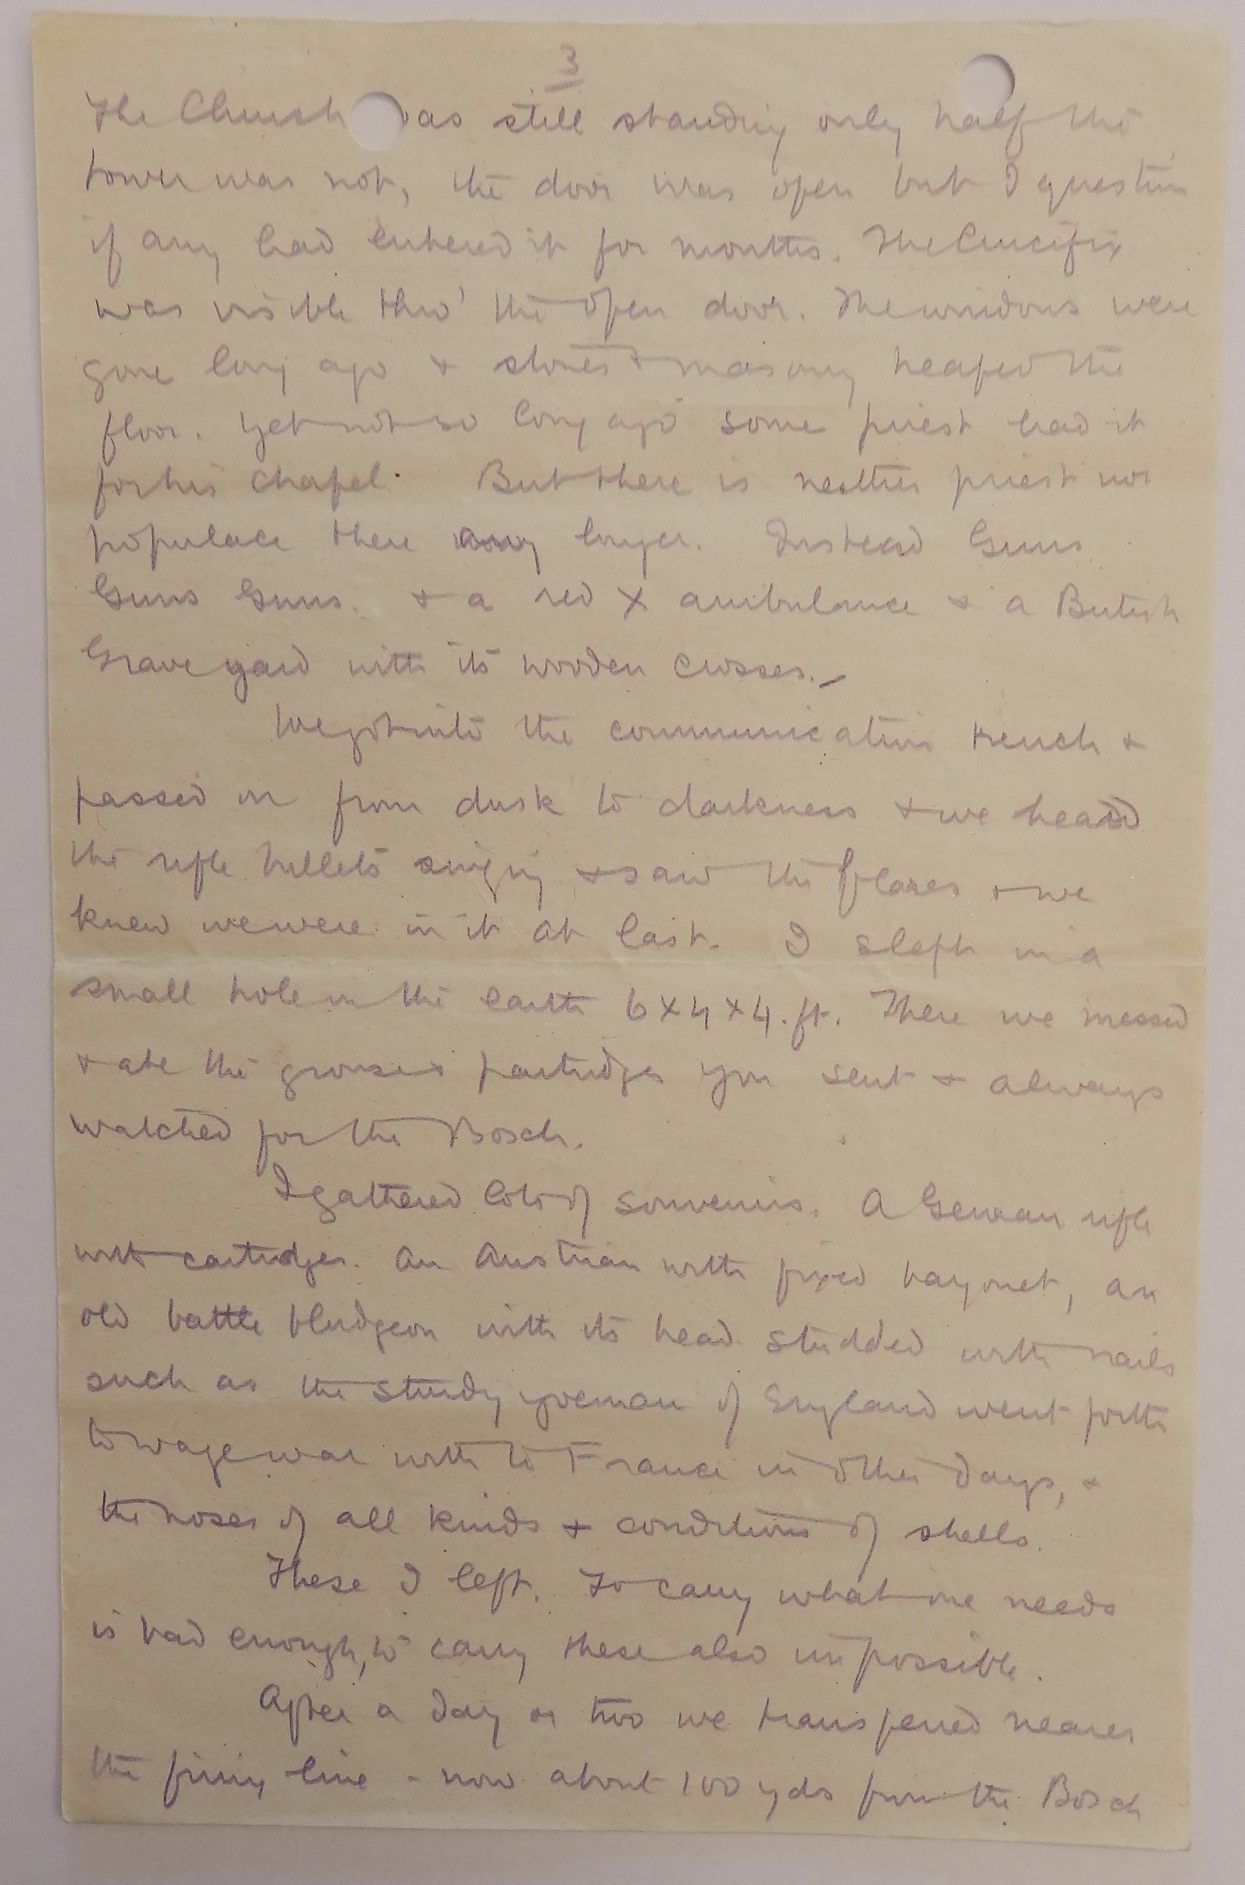 3
The Church was still standing only half the
tower was not, the door was open but I question
if any had entered it for months. The Crucifix
was visible thro' the open door. The windows were
gone long ago & stones & masonry heaped the
floor. Yet not so long ago some priest had it
for his chapel. But there is neither priest nor
populace there any longer. Instead Guns
Guns Guns. & a red X ambulance & a British
Graveyard with its wooden crosses.
We got into the communication trench &
passed on from dusk to darkness & we heard
the rifle bullets singing & saw the flares & we
knew we were in it at last. I slept in a
small hole in the earth 6 x 4 x 4. ft. There we messed
& ate the grouse & partridges you sent & always
watched for the Bosch.
I gathered lots of souvenirs. A German rifle
with cartridges. An Austrian with fixed bayonet, an
old battle bludgeon with its head studded with nails
such as the sturdy yoeman of England went forth
to wage war with to France in other days, &
the noses of all kinds & conditions of shells.
These I left. To carry what one needs
is bad enough, to carry these also impossible.
After a day or two we transferred nearer
the firing line - now about 100 yds from the Bosch